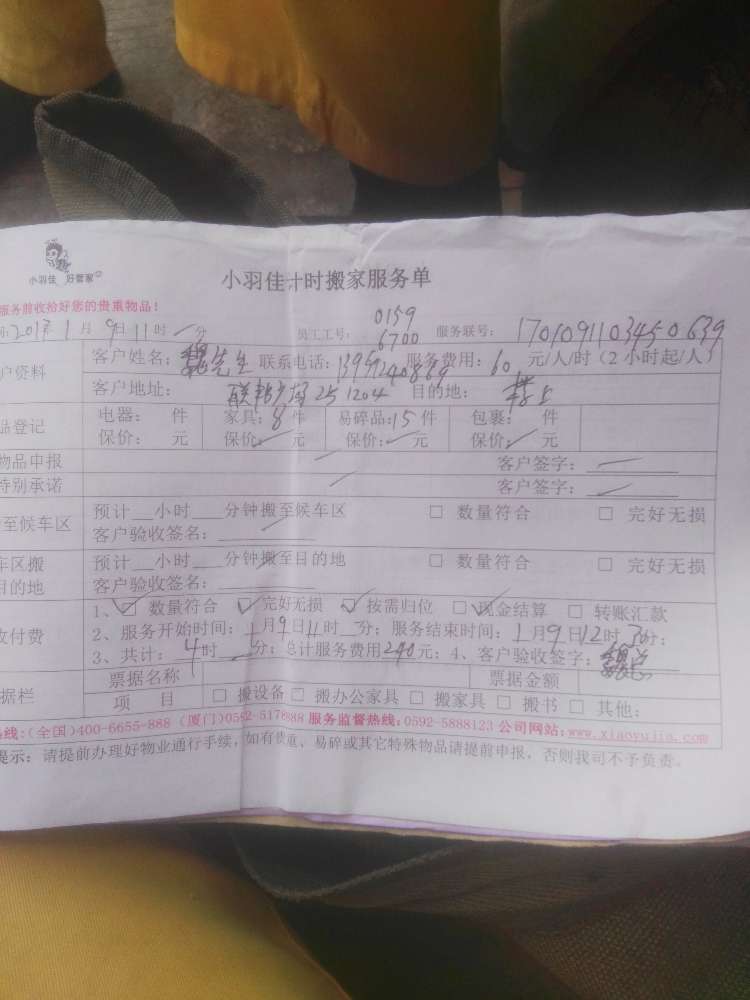 小羽佳 好管家
小羽佳计时搬家服务单
服务前收拾好您的贵重物品!
2017年1月9日11时 分 员工工号: 0159 6700 服务联号: 170109110345 0639
户资料 客户姓名: 魏先生 联系电话: 服务费用: 60 元/人/时(2小时起/人)
客户地址: 联邦广场25 1204 目的地: 楼上
品登记 电器: 件 家具: 8件 易碎品: 15件 包裹: 件
保价: 元 保价: 元 保价: 元 保价: 元
物品申报 客户签字:
特别承诺 客户签字:
至候车区 预计__小时___分钟搬至候车区 □ 数量符合 □ 完好无损
客户验收签名:
车区搬 预计__小时___分钟搬至目的地 □ 数量符合 □ 完好无损
目的地 客户验收签名:
1、☑ 数量符合 ☑ 完好无损 ☑ 按需归位 ☑ 现金结算 □ 转账汇款
收付费 2、服务开始时间: 1月9日11时 分; 服务结束时间: 1月9日12时30分;
3、共计: 4时 分; 总计服务费用240元; 4、客户验收签字:
据栏 票据名称 票据金额
项 目 □ 搬设备 □ 搬办公家具 □ 搬家具 □ 搬书 □ 其他:
热线:(全国)400-6655-888 (厦门)0592-5178888 服务监督热线:0592-5888123 公司网站:www.xiaoyujia.com
提示: 请提前办理好物业通行手续,如有贵重、易碎或其它特殊物品请提前申报,否则我司不予负责。